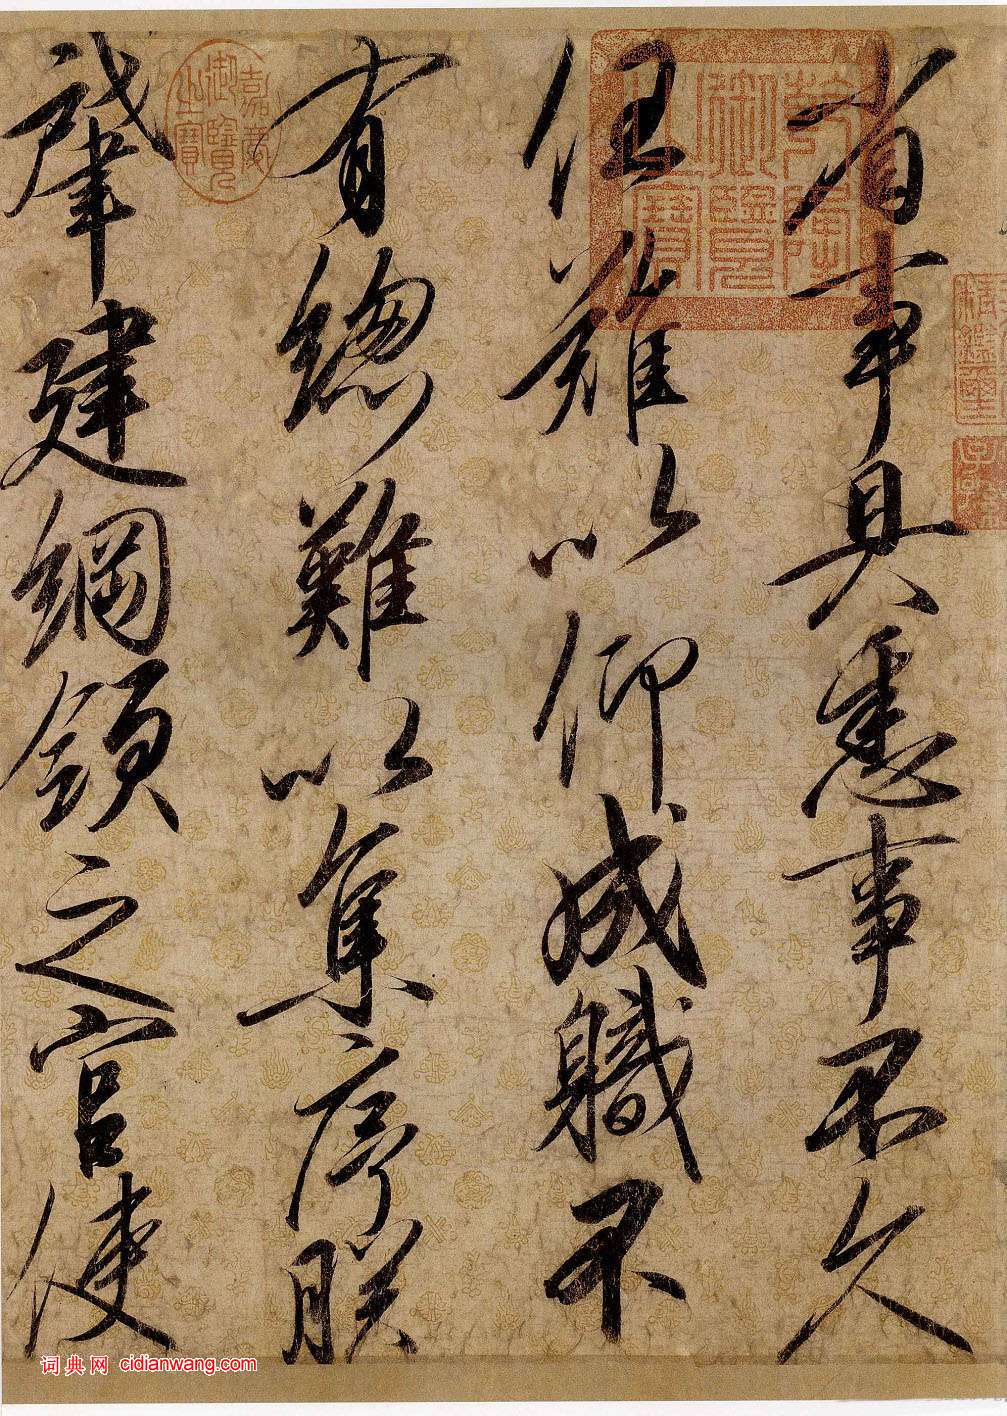 省事具悉事不久
任難以仰成職不
有總難以集序朕
肇建綱領之官使
乾隆御覽之寶
嘉慶御覽之寶
精鑑璽
词典网 cidianwang.com